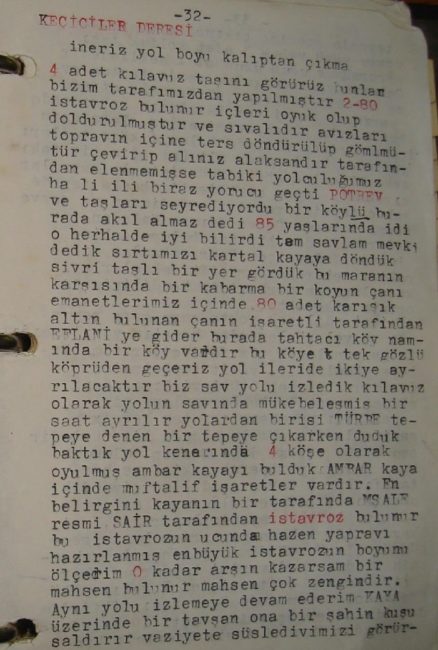 -32-
KEÇİCİLER DERESİ
ineriz yol boyu kalıptan çıkma
4 adet kılavuz taşını görürüz bunlar
bizim tarafımızdan yapılmıştır 2-80
istavroz bulunur içleri oyuk olup
doldurulmuştur ve sıvalıdır avızları
topravın içine ters döndürülüp gömlmü-
tür çevirip alınız alaksandır tarafın-
dan elenmemişse tabiki yolculuğumuz
ha li ili biraz yorucu geçti POTREV
ve taşları seyrediyordu bir köylü bu-
rada akıl almaz dedi 85 yaşlarında idi
o herhalde iyi bilirdi tam savlam mevki
dedik sırtımızı kartal kayaya döndük
sivri taşlı bir yer gördük bu maranın
karşısında bir kabarma bir koyun çanı
emanetlerimiz içinde 80 adet karışık
altın bulunan çanın işaretli tarafından
EFLANİ ye gider burada tahtacı köv nam-
ında bir köy vardır bu köye tek gözlü
köprüden geçeriz yol ileride ikiye ay-
rılacaktır biz sav yolu izledik kılavuz
olarak yolun savında mükebeleşmiş bir
saat ayrılır yolardan birisi TÜRBE te-
peye denen bir tepeye çıkarken duduk
baktık yol kenarında 4 köşe olarak
oyulmuş ambar kayayı bulduk AMBAR kaya
içinde muftalif işaretler vardır. En
belirgini kayanın bir tarafında MŞALE
resmi SAİR tarafından istavroz bulunur
bu istavrozun ucunda hazen yapravı
hazırlanmış enbüyük istavrozun boyunu
ölçerim O kadar arşın kazarsam bir
mahsen bulunur mahsen çok zengindir.
Aynı yolu izlemeye devam ederim KAYA
üzerinde bir tavşan ona bir şahin kuşu
saldırır vaziyete süsledivimizi görür-